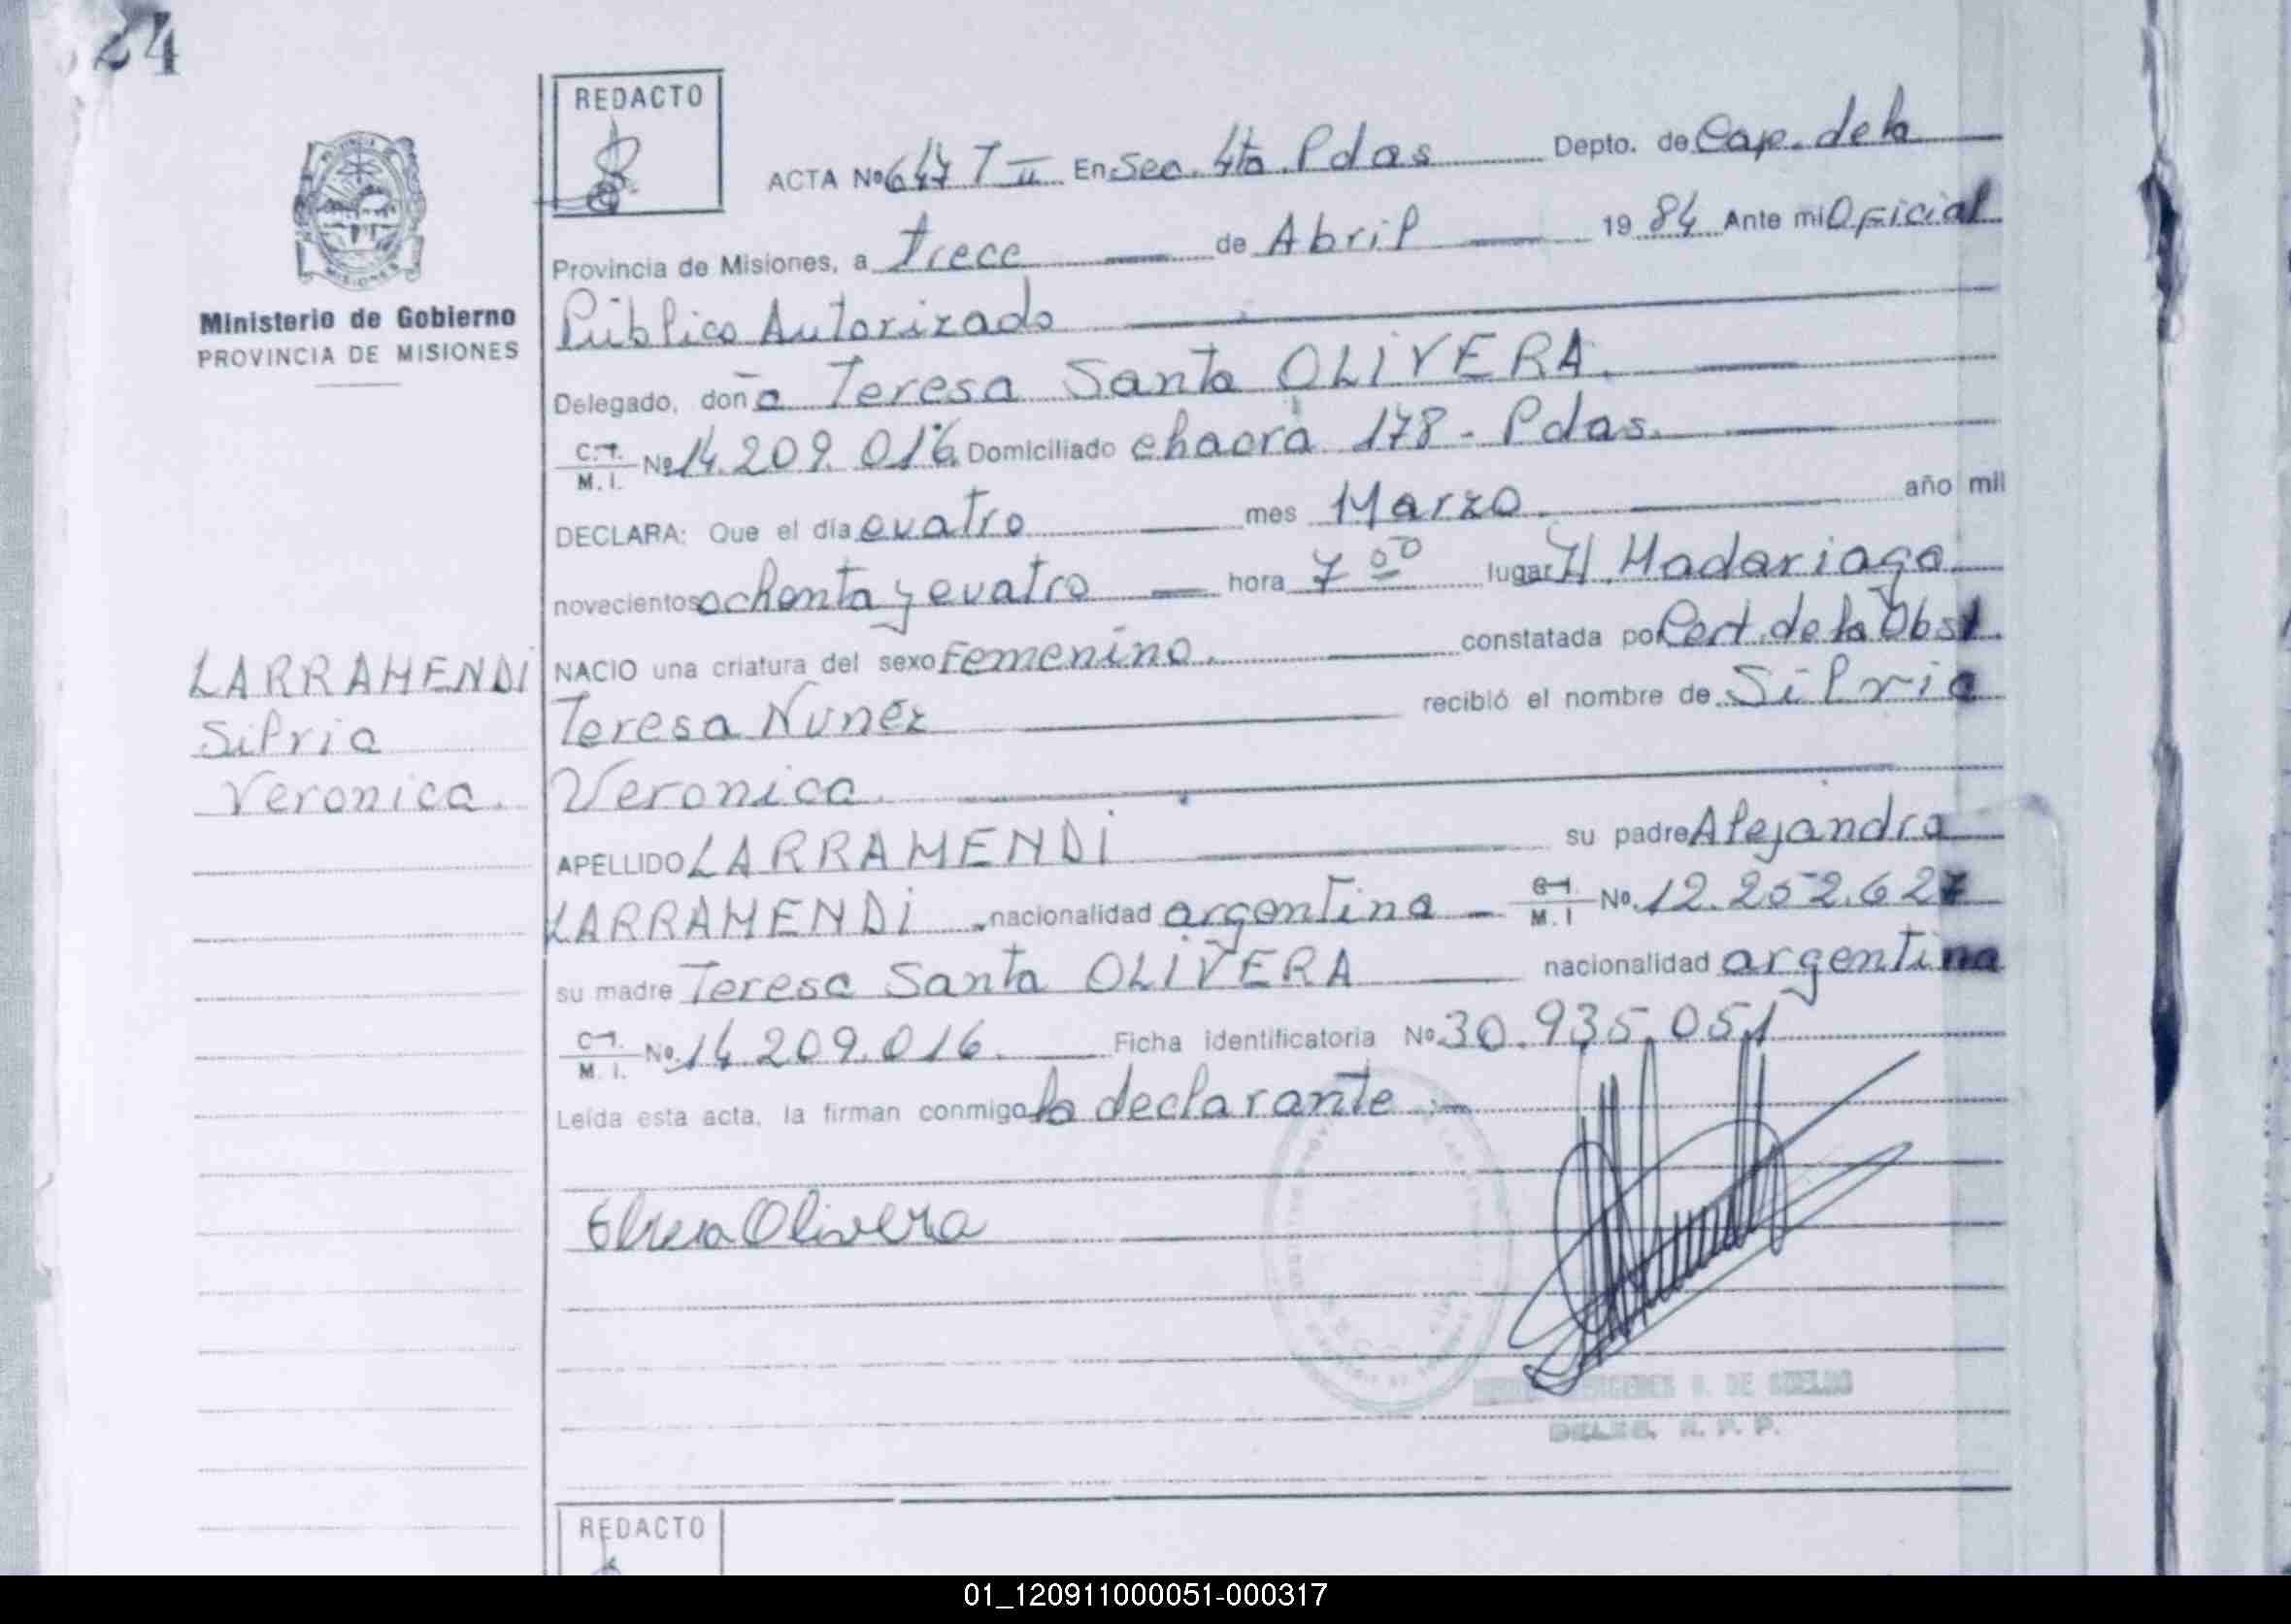 24
REDACTO
ACTA Nº 647 T II En Sec. 4ta. Pdas Depto. de Cap. de la
Provincia de Misiones, a trece de Abril 1984 Ante mi Oficial
Público Autorizado
Delegado, doña Teresa Santa OLIVERA.
C.I. M.I. Nº 14.209.016 Domiciliado chacra 178 - Pdas.
DECLARA: Que el día cuatro mes Marzo año mil
novecientos ochenta y cuatro hora 7 00 lugar H. Madariaga
NACIO una criatura del sexo Femenino. constatada por Cert. de la Obst.
Teresa Nunez recibió el nombre de Silvia
Veronica.
APELLIDO LARRAMENDI su padre Alejandro
LARRAMENDI nacionalidad argentina C.I. M.I Nº 12.252.627
su madre Teresa Santa OLIVERA nacionalidad argentina
C.I. M.I. Nº 14.209.016. Ficha identificatoria Nº 30.935.051
Leída esta acta, la firman conmigo la declarante.-
Olivera
DE
R. P. P.
Ministerio de Gobierno
PROVINCIA DE MISIONES
LARRAMENDI
Silvia
Veronica.
REDACTO
01_120911000051-000317